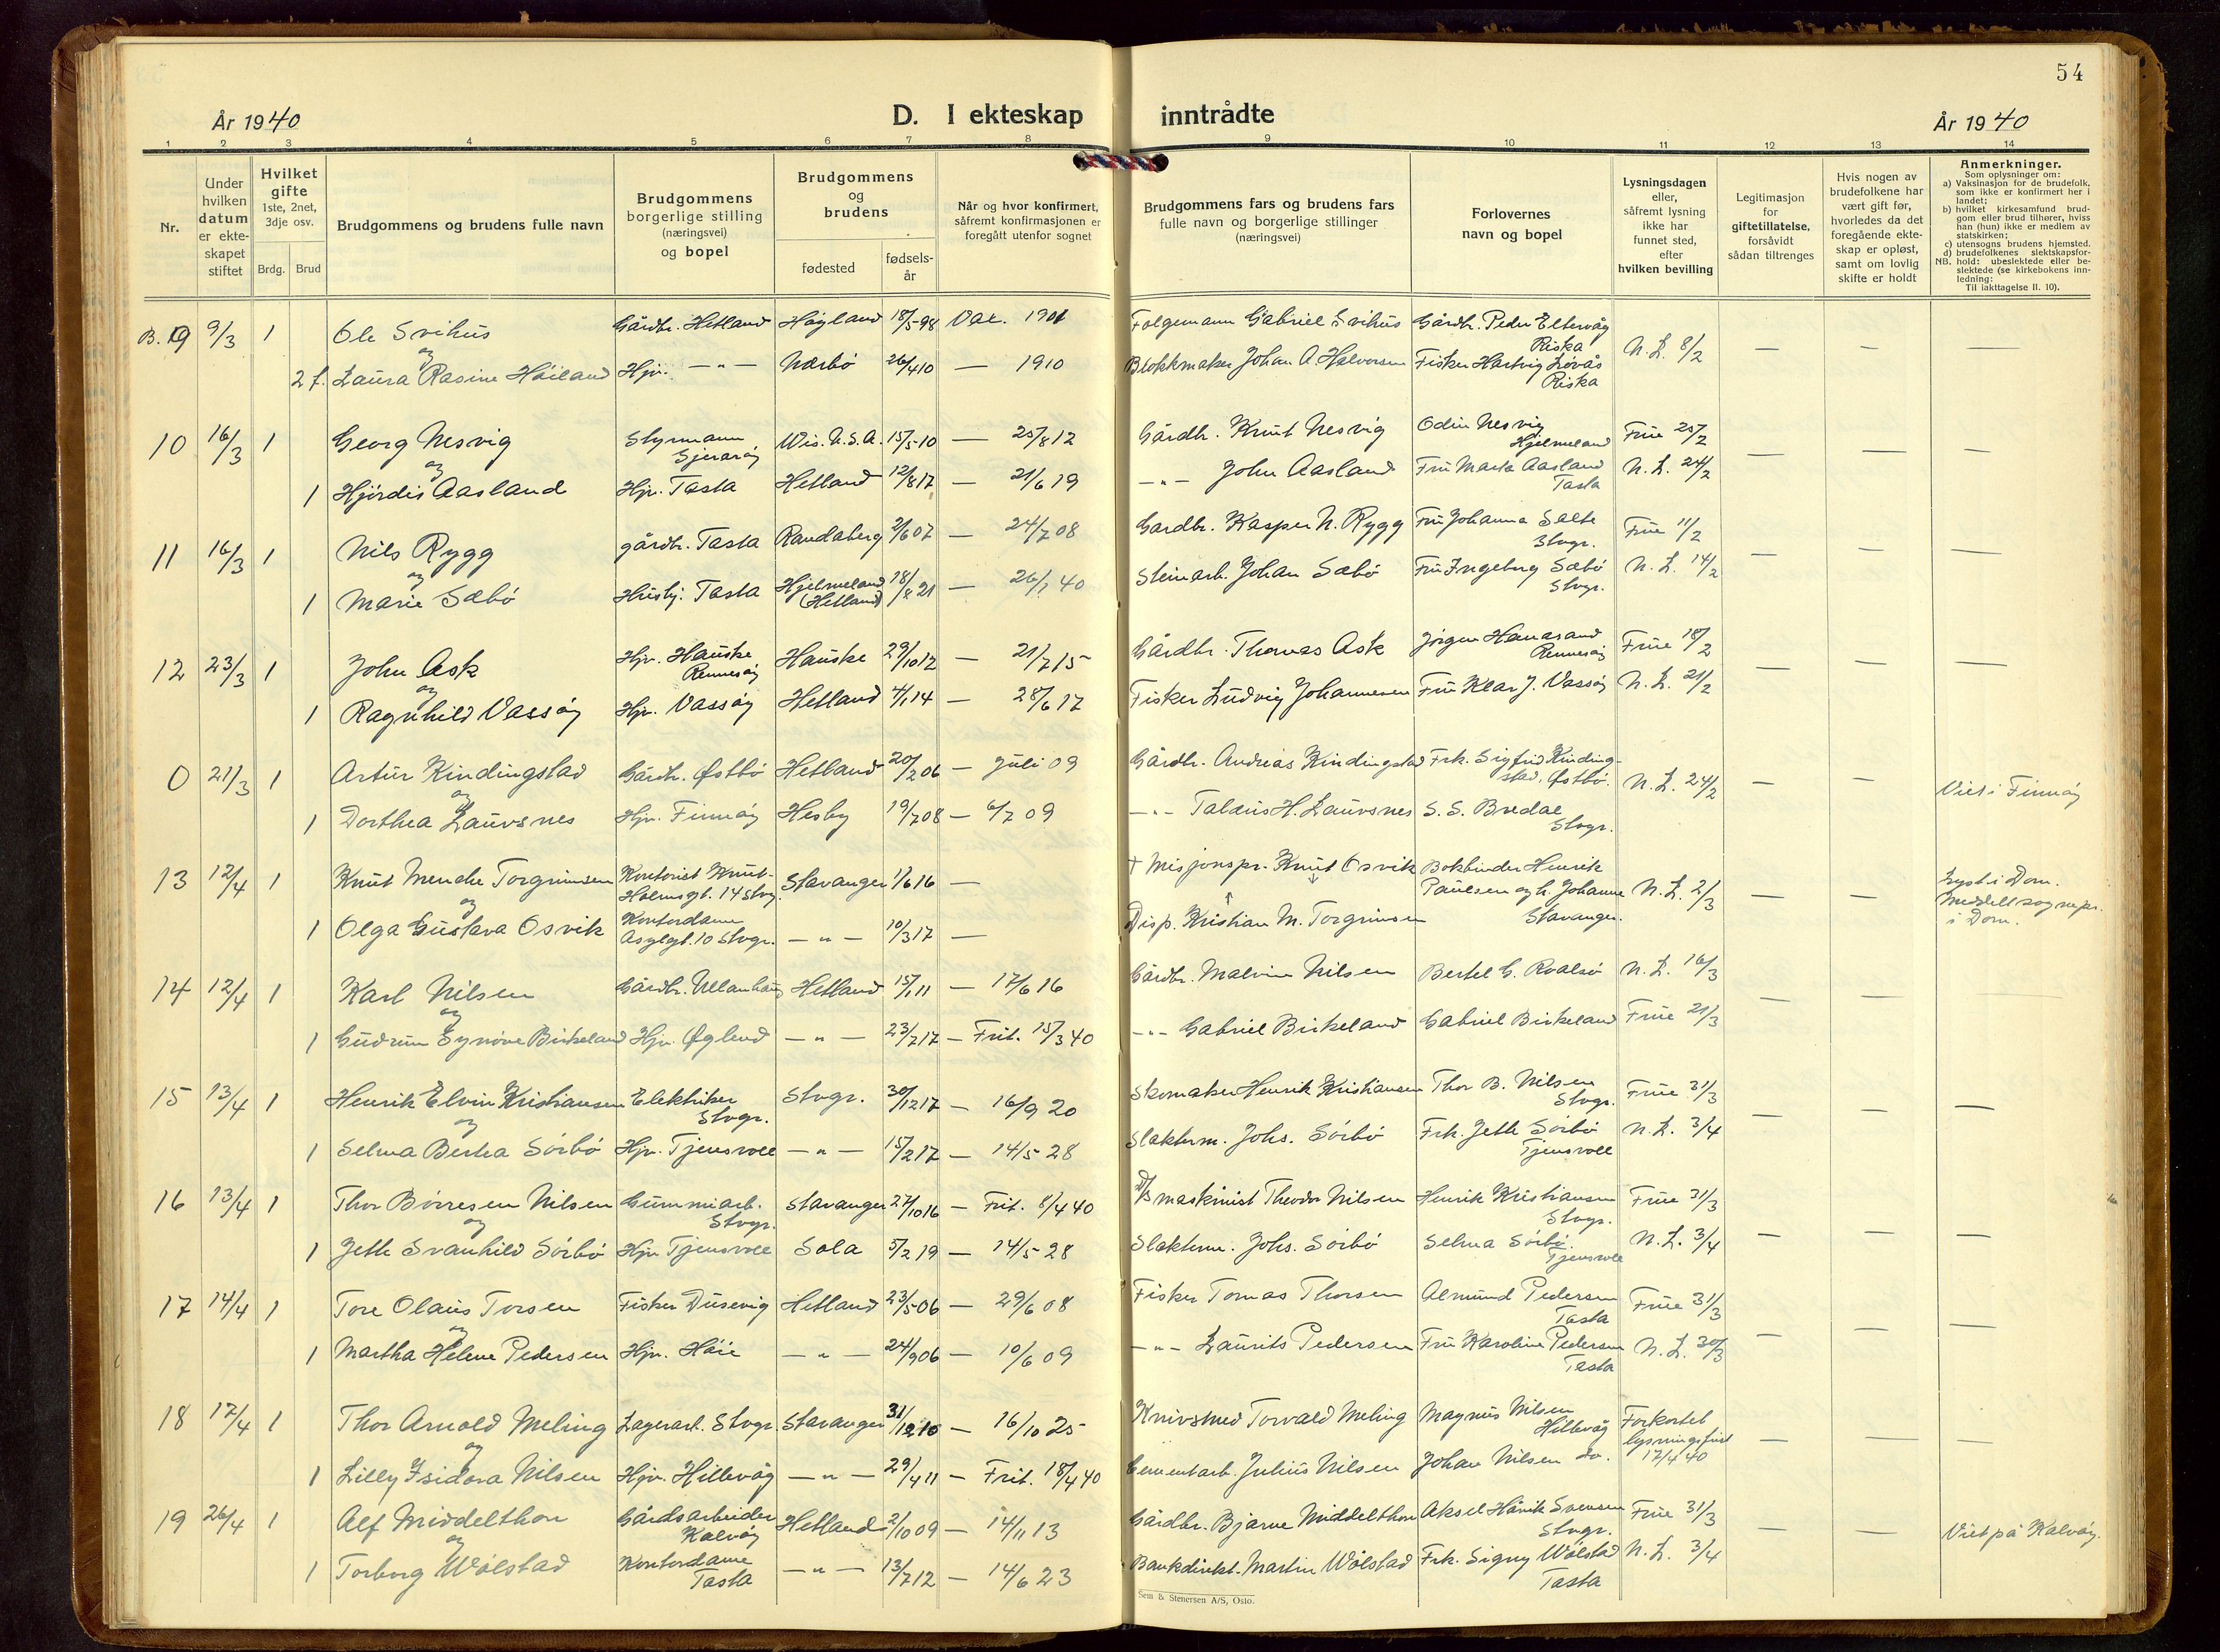 54
År 1940
D. I ekteskap inntrådte
År 1940
1 2 3 4 5 6 7 8 9 10 11 12 13 14
Nr.
Under hvilken datum er ekteskapet stiftet
Hvilket gifte
1ste, 2net, 3dje osv.
Brdg. Brud
Brudgommens og brudens fulle navn
Brudgommens borgerlige stilling (næringsvei) og bopel
Brudgommens og brudens
fødested
fødsels-år
Når og hvor konfirmert, såfremt konfirmasjonen er foregått utenfor sognet
Brudgommens fars og brudens fars fulle navn og borgerlige stillinger (næringsvei)
Forlovernes navn og bopel
Lysningsdagen eller, såfremt lysning ikke har funnet sted, efter hvilken bevilling
Legitimasjon for giftetillatelse, forsåvidt sådan tiltrenges
Hvis nogen av brudefolkene har vært gift før, hvorledes da det foregående ekteskap er opløst, samt om lovlig skifte er holdt
Anmerkninger.
Som oplysninger om:
a) Vaksinasjon for de brudefolk, som ikke er konfirmert her i landet;
b) hvilket kirkesamfund brudgom eller brud tilhører, hviss han (hun) ikke er medlem av statskirken;
c) utensogns brudens hjemsted.
d) brudefolkenes slektskapsforhold: ubeslektede eller beslektede (se kirkebokens innledning:
NB. Til iakttagelse II. 10).
B. 9 9/3 1 Ole Svihus Gårdbr. Hetland Høyland 18/5-98 Vac. 1901 Følgemann Gabriel Svihus Gårdbr. Peder Eltervåg Riska N. L. 8/2 — — —
og
2 f. Laura Rasine Høiland Hjv. — " — Nærbø 26/4 10 — 1910 Blokkmaker Johan A. Halvorsen Fisker Hartvig Løvås Riska
10 16/3 1 Georg Nesvig Styrmann Wis. U.S.A. 15/5-10 — 25/8 12 Gårdbr. Knut Nesvig Odin Nesvig Hjelmeland Frue 25/2 — — —
og
1 Hjördis Aasland Hjv. Tasta Hetland 12/8 17 — 21/6 19 — " — John Aasland Fru Marta Aasland Tasta N. L. 24/2
11 16/3 1 Nils Rygg gårdbr. Tasta Randaberg 2/6 07 — 24/7 08 Gardbr. Kasper N. Rygg Fru Johanna Salte Stvgr. Frue 11/2 — — —
og
1 Marie Sæbö Husbj. Tasta Hjelmeland (Hetland) 18/8 21 — 26/1 40 Steinarb. Johan Sæbö Fru Ingeborg Sæbö Stvgr. N. L. 14/2
12 23/3 1 John Ask Hjv. Hauske Rennesöy Hauske 29/10 12 — 21/7 15 Gårdbr. Thomas Ask Jörgen Hanasand Rennesöy Frue 18/2 — — —
og
1 Ragnhild Vassöy Hjv. Vassöy Hetland 4/1 14 — 28/6 17 Fisker Ludvig Johannesen Fru Klar J. Vassöy N. L. 21/2
0 21/3 1 Artur Kindingstad Gårdbr. Østbö Hetland 20/2 06 — Juli 09 Gårdbr. Andreas Kindingstad Frk. Sigfrid Kindingstad, Østbö. N. L. 24/2 — — Viet i Finnöy
og
1 Dorthea Laurvsnes Hjv. Finnöy Hesby 19/7 08 — 6/7 09 — " — Talæus H. Laurvsnes S. S. Bredal Stvgr.
13 12/4 1 Knut Menche Torgrimsen Kontorist Knut-Holmsgt. 14 Stvg. Stavanger 1/6 16 — † Misjonspr. Knut Osvik Bokbinder Henrik Paulsen og h. Johanne Stavanger. N. L. 2/3 — — Lyst i Dom. Meddelt sognepr. i Dom.
og
1 Olga Gustava Osvik Kontordame Asylgt. 10 Stvgr. — " — 10/3 17 — Disp. Kristian M. Torgrimsen
14 12/4 1 Karl Nilsen Gårdbr. Ullanhaug Hetland 15/1 11 — 17/6 16 Gårdbr. Malvin Nilsen Bertel G. Roalsö N. L. 16/3 — — —
og
1 Gudrun Synöve Birkeland Hjv. Øglend — " — 23/7 17 — Frit. 15/3 40 — " — Gabriel Birkeland Gabriel Birkeland Frue 21/3
15 13/4 1 Henrik Elvin Kristiansen Elektriker Stvgr. Stvgr. 30/12 17 — 16/9 20 Skomaker Henrik Kristiansen Thor B. Nilsen Stvgr. Frue 31/3 — — —
og
1 Selma Bertea Sörbö Hjv. Tjensvoll — " — 15/2 17 — 14/5 28 Slakterm. Johs. Sörbö Frk. Jette Sörbö Tjensvoll N. L. 3/4
16 13/4 1 Thor Börresen Nilsen Gummiarb. Stvgr. Stavanger 27/10 16 — Frit. 8/4 40 D/S maskinist Theodor Nilsen Henrik Kristiansen Stvgr. Frue 31/3 — — —
og
1 Jette Svanhild Sörbö Hjv. Tjensvoll Sola 5/2 19 — 14/5 28 Slakterm. Johs. Sörbö Selma Sörbö. Tjensvoll N. L. 3/4
17 14/4 1 Tore Olaus Torsen Fisker Dusevig Hetland 23/5 06 — 29/6 08 Fisker Tomas Thorsen Almund Pedersen Tasta Frue 31/3 — — —
og
1 Martha Helene Pedersen Hjv. Höie — " — 24/9 06 — 10/6 09 — " — Laurits Pedersen Fru Karoline Pedersen Tasta N. L. 30/3
18 17/4 1 Thor Arnold Meling Lagerarb. Stvgr. Stavanger 31/12 10 — 16/10 25 Knivsmed Torvald Meling Magnus Nilsen Hillevåg Forkortet lysningsfrist 17/4 40 — — —
og
1 Lilly Isidora Nilsen Hjv. Hillevåg — " — 29/4 11 — Frit. 18/4 40 Cementarb. Julius Nilsen Johan Nilsen do.
19 26/4 1 Alf Middelthon Gårdsarbeider Kalvöy Hetland 2/10 09 — 14/11 13 Gårdbr. Bjarne Middelthon Aksel Hårik Svensen Stvgr. Frue 31/3 — — Viet på Kalvöy.
og
1 Torborg Wölstad Kontordame Tasta — " — 13/7 12 — 14/6 23 Bankdirekt. Martin Wölstad Frk. Signy Wölstad Tasta N. L. 3/4
Sem & Stenersen A/S, Oslo.